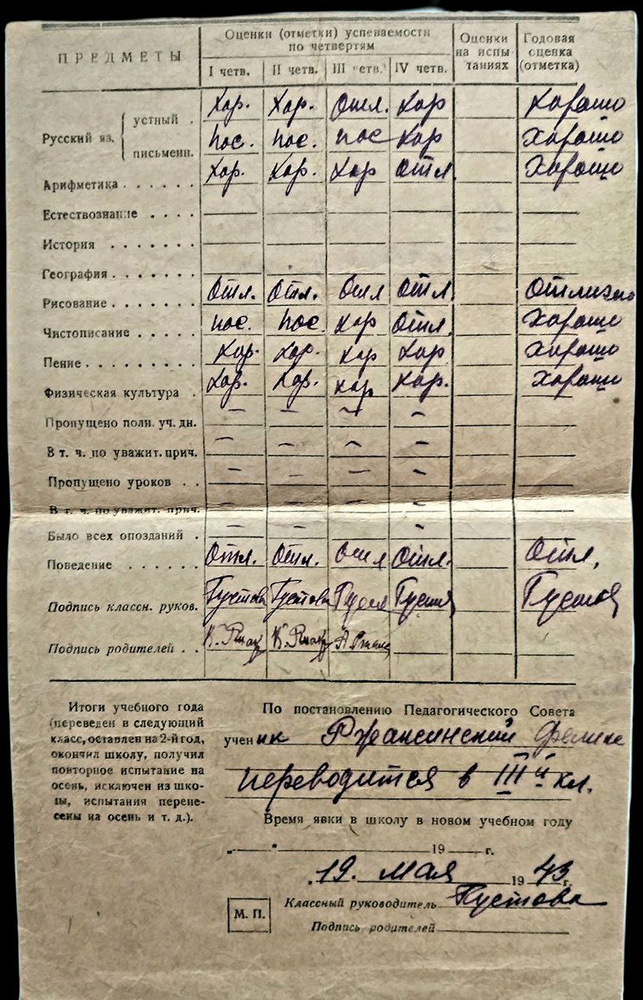 ПРЕДМЕТЫ
Оценки (отметки) успеваемости по четвертям
Оценки на испытаниях
Годовая оценка (отметка)
I четв. II четв. III четв. IV четв.
Русский яз.
устный . Хор. Хор. Отл. Хор Хорошо
письменн. пос. пос. пос Хор Хорошо
Арифметика . . . . . . Хор. Хор. Хор отл. Хорошо
Естествознание . . . .
История . . . . . . .
География . . . . . .
Рисование . . . . . . Отл. Отл. Отл Отл. Отлично
Чистописание . . . . . пос. пос. хор Отл. Хорошо
Пение . . . . . . . . Хор. Хор. хор Хор Хорошо
Физическая культура . Хор. Хор. хор Хор. Хорошо
Пропущено полн. уч. дн. – – – –
В т. ч. по уважит. прич. – – – –
Пропущено уроков . . . – – – –
В т. ч. по уважит. прич. – – – –
Было всех опозданий . – – –
Поведение . . . . . . Отл. Отл. отл Отл. Отл.
Подпись классн. руков. Густова Густова
Подпись родителей . .
Итоги учебного года
(переведен в следующий
класс, оставлен на 2-й год,
окончил школу, получил
повторное испытание на
осень, исключен из шко-
лы, испытания перене-
сены на осень и т. д.).
По постановлению Педагогического Совета
ученик
переводится в III й кл.
Время явки в школу в новом учебном году
19 — г.
19. мая 1943 г.
М. П.
Классный руководитель Густова
Подпись родителей